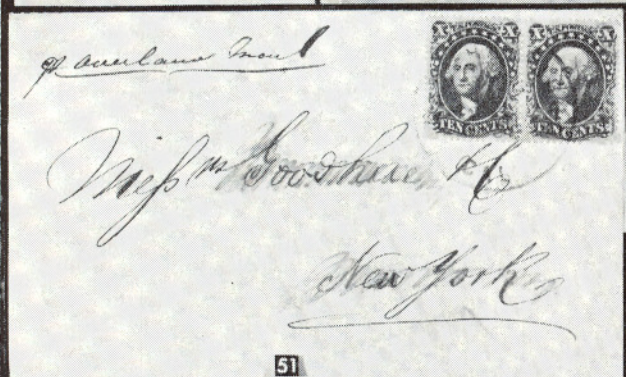 pr Overland Mail
X X X X
TEN CENTS. TEN CENTS.
Mess rs Goodhue & Co
New York
51